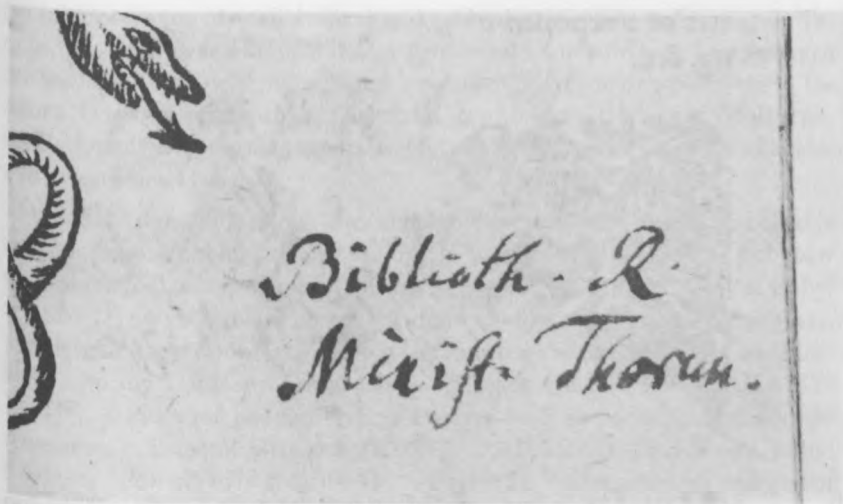 Biblioth. R.
Minist. Thorun.